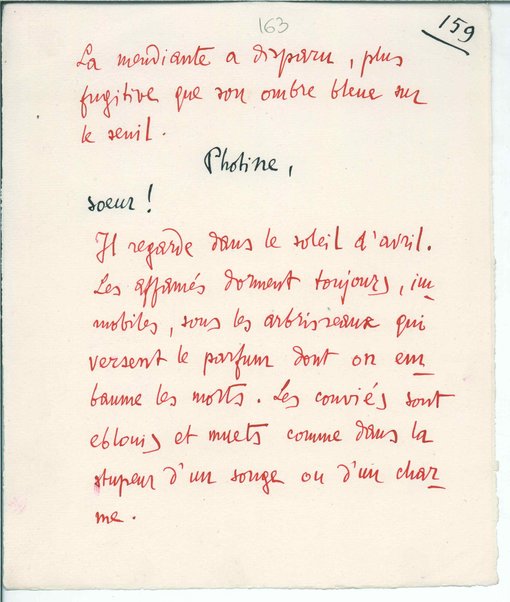 163
159
La mendiante a disparu, plus
fugitive que son ombre bleue sur
le seuil.
Photine,
soeur !
Il regarde dans le soleil d'avril.
Les affamés dorment toujours, im_
mobiles, sous les arbrisseaux qui
versent le parfum dont on em_
baume les morts. Les conviés sont
eblouis et muets comme dans la
stupeur d'un songe ou d'un char_
me.